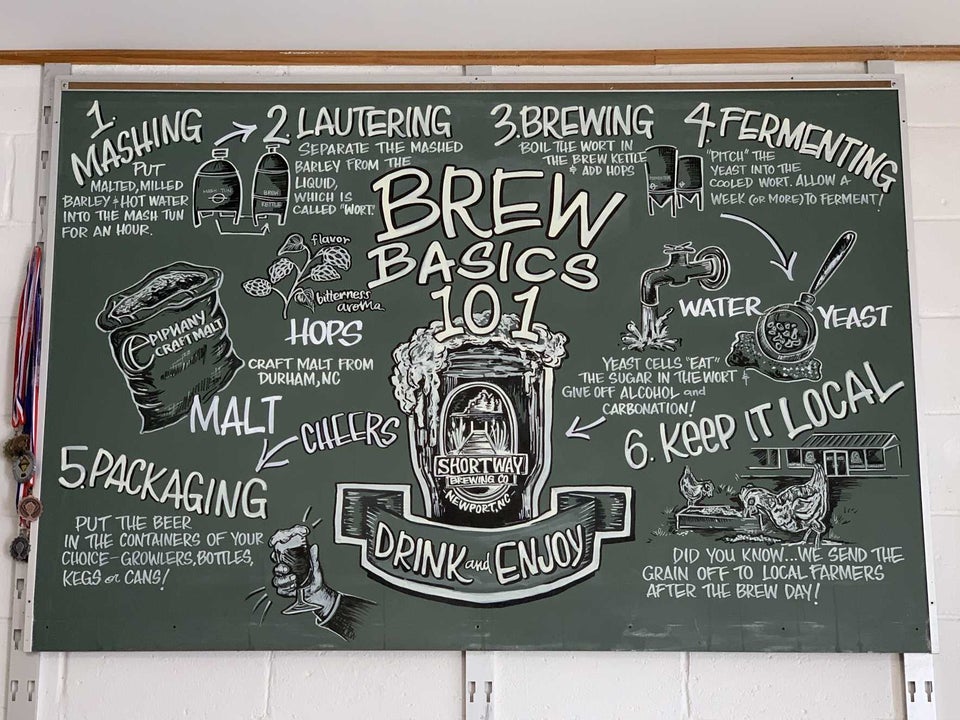 1.
MASHING
PUT
MALTED, MILLED
BARLEY + HOT WATER
INTO THE MASH TUN
FOR AN HOUR.
2. LAUTERING
SEPARATE THE MASHED
BARLEY FROM THE
LIQUID,
WHICH IS
CALLED "WORT."
MASH TUN
BREW
KETTLE
3. BREWING
BOIL THE WORT IN
THE BREW KETTLE
& ADD HOPS
4. FERMENTING
"PITCH" THE
YEAST INTO THE
COOLED WORT. ALLOW A
WEEK (OR MORE) TO FERMENT!
BREW
BASICS
101
flavor
bitterness
aroma
HOPS
EPIPHANY
CRAFT MALT
CRAFT MALT FROM
DURHAM, NC
MALT
WATER
YEAST
YEAST CELLS "EAT"
THE SUGAR IN THE WORT &
GIVE OFF ALCOHOL and
CARBONATION!
CHEERS
SHORTWAY
BREWING CO.
NEWPORT, NC
DRINK and ENJOY
5. PACKAGING
PUT THE BEER
IN THE CONTAINERS OF YOUR
CHOICE - GROWLERS, BOTTLES,
KEGS or CANS!
6. KEEP IT LOCAL
DID YOU KNOW... WE SEND THE
GRAIN OFF TO LOCAL FARMERS
AFTER THE BREW DAY!